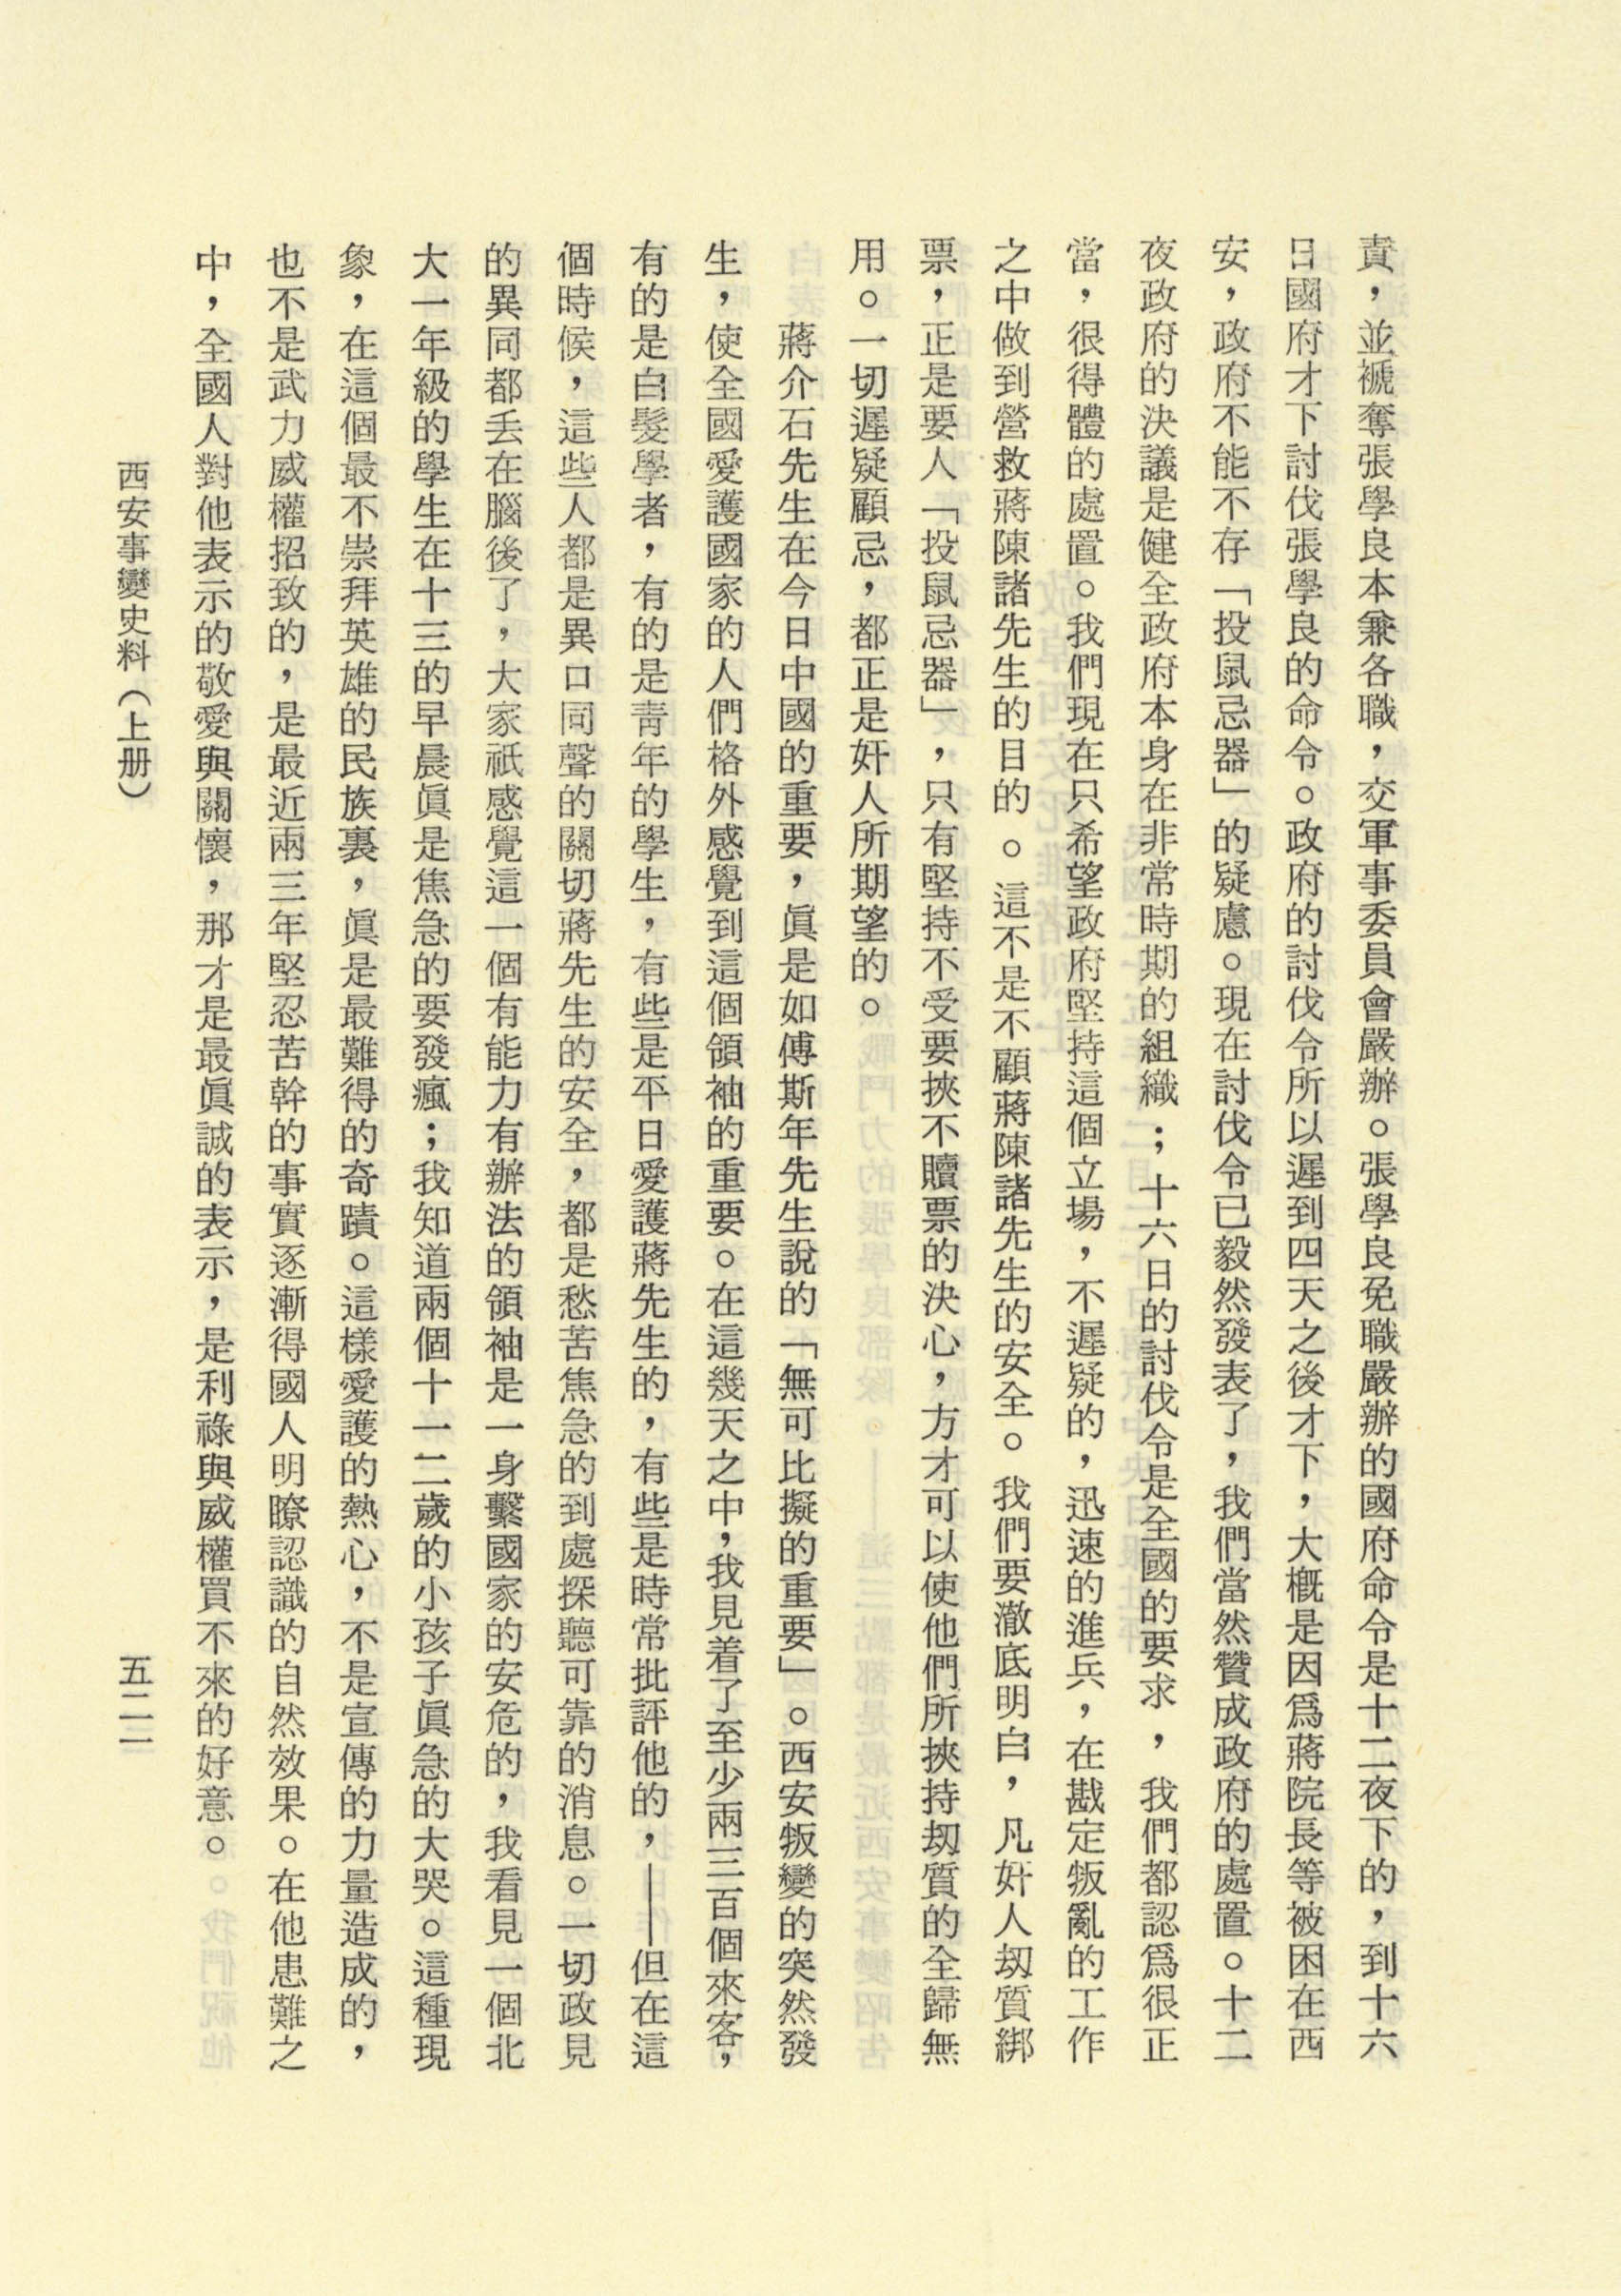 責，並褫奪張學良本兼各職，交軍事委員會嚴辦。張學良免職嚴辦的國府命令是十二夜下的，到十六
日國府才下討伐張學良的命令。政府的討伐令所以遲到四天之後才下，大概是因爲蔣院長等被困在西
安，政府不能不存「投鼠忌器」的疑慮。現在討伐令已毅然發表了，我們當然贊成政府的處置。十二
夜政府的決議是健全政府本身在非常時期的組織；十六日的討伐令是全國的要求，我們都認爲很正
當，很得體的處置。我們現在只希望政府堅持這個立場，不遲疑的，迅速的進兵，在戡定叛亂的工作
之中做到營救蔣陳諸先生的目的。這不是不顧蔣陳諸先生的安全。我們要澈底明白，凡奸人刼質綁
票，正是要人「投鼠忌器」，只有堅持不受要挾不贖票的決心，方才可以使他們所挾持刼質的全歸無
用。一切遲疑顧忌，都正是奸人所期望的。
蔣介石先生在今日中國的重要，眞是如傅斯年先生說的「無可比擬的重要」。西安叛變的突然發
生，使全國愛護國家的人們格外感覺到這個領袖的重要。在這幾天之中，我見着了至少兩三百個來客，
有的是白髮學者，有的是青年的學生，有些是平日愛護蔣先生的，有些是時常批評他的，——但在這
個時候，這些人都是異口同聲的關切蔣先生的安全，都是愁苦焦急的到處探聽可靠的消息。一切政見
的異同都丢在腦後了，大家祇感覺這一個有能力有辦法的領袖是一身繫國家的安危的，我看見一個北
大一年級的學生在十三的早晨眞是焦急的要發瘋；我知道兩個十一二歲的小孩子眞急的大哭。這種現
象，在這個最不崇拜英雄的民族裏，眞是最難得的奇蹟。這樣愛護的熱心，不是宣傳的力量造成的，
也不是武力威權招致的，是最近兩三年堅忍苦幹的事實逐漸得國人明瞭認識的自然效果。在他患難之
中，全國人對他表示的敬愛與關懷，那才是最眞誠的表示，是利祿與威權買不來的好意。
西安事變史料（上册）
五二二